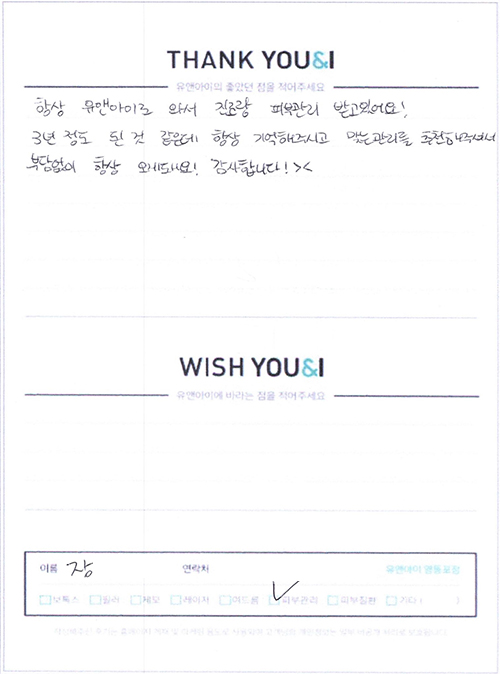 THANK YOU&I
유앤아이의 좋았던 점을 적어주세요
항상 유앤아이로 와서 진료랑 피부관리 받고있어요!
3년 정도 된 것 같은데 항상 기억해주시고 맞는관리를 추천해주셔서
부담없이 항상 오게돼요! 감사합니다! ><
WISH YOU&I
유앤아이에 바라는 점을 적어주세요
이름 장 연락처 유앤아이 영등포점
보톡스 필러 제모 레이저 여드름 ✓ 피부관리 피부질환 기타 ( )